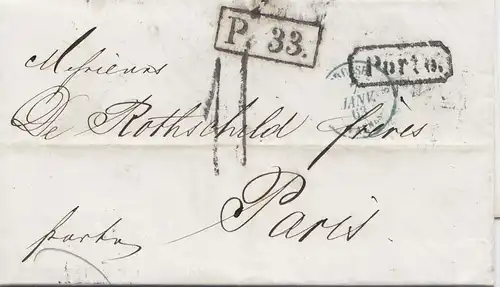 P. 33.
Porto.
JANV.
Messieurs
De Rothschild frères
11
Paris.
porto